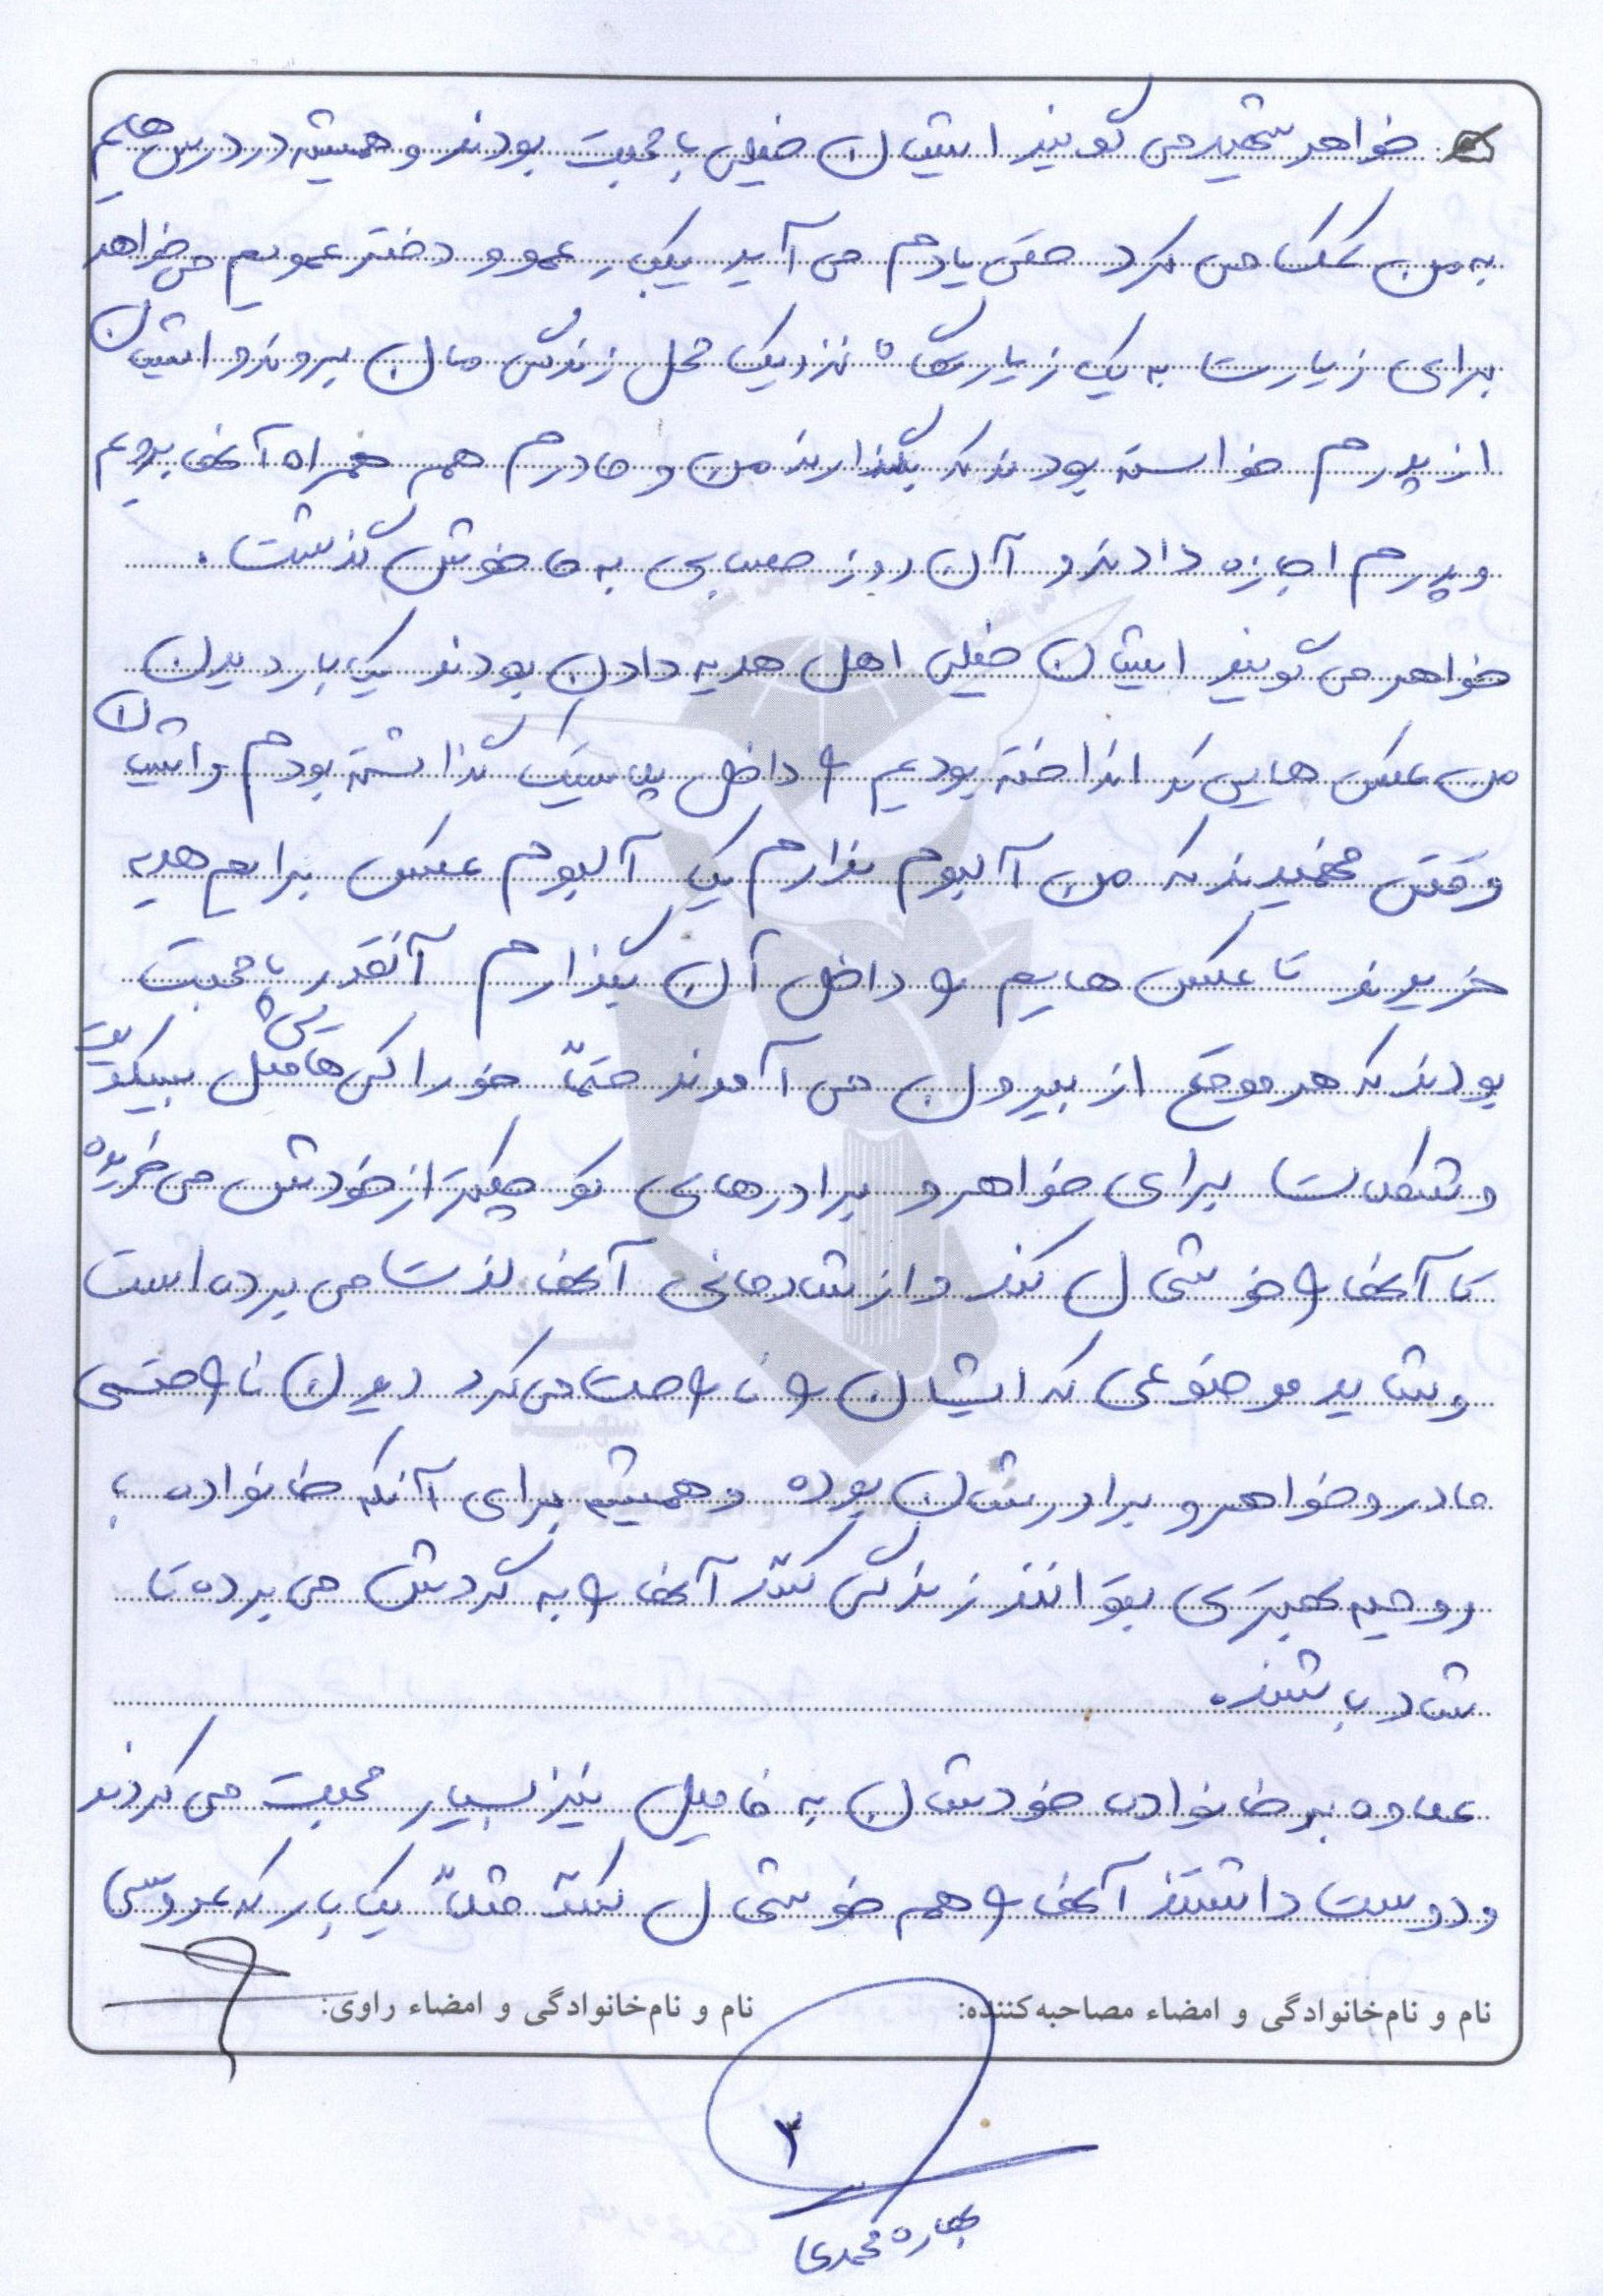 خواهر شهید می گویند ایشان خیلی با محبت بودند و همیشه در درس هایم
به من کمک می کرد حتی یادم می آید یکبار عمو و دختر عمویم می خواهد
برای زیارت به یک زیارتگاه نزدیک محل زندگی مان بروند و ایشان
از پدرم خواسته بودند که بگذارند من و مادرم هم همراه آنها برویم
و پدرم اجازه دادند و آن روز حسابی به ما خوش گذشت.
خواهر می گویند ایشان خیلی اهل هدیه دادن بودند یک بار دیدن
من عکس هایی که انداخته بودیم را داخل پلاستیک گذاشته بودم و ایشان
وقتی فهمیدند که من آلبوم ندارم یک آلبوم عکس برایم هدیه
خریدند تا عکس هایم را داخل آن بگذارم آنقدر با محبت
بودند که هر موقع از بیرون می آمدند حتماً خوراکی هایی مثل بیسکویت
و شکلات برای خواهر و برادرهای کوچکتر از خودش می خریده
تا آنها را خوشحال کند و از شادمانی آنها لذت می برده است
و شاید موضوعی که ایشان را ناراحت می کرد دیدن ناراحتی
مادر و خواهر و برادرشان بوده و همیشه برای آنکه خانواده با
روحیه بهتری بتوانند زندگی کنند آنها را به گردش می برده تا
شاد باشند.
علاوه بر خانواده خودشان به فامیل نیز بسیار محبت می کردند
و دوست داشتند آنها را هم خوشحال کنند مثلاً یک بار که عروسی
نام و نام‌خانوادگی و امضاء مصاحبه‌کننده:
نام و نام‌خانوادگی و امضاء راوی:
۳
بهاره محمدی